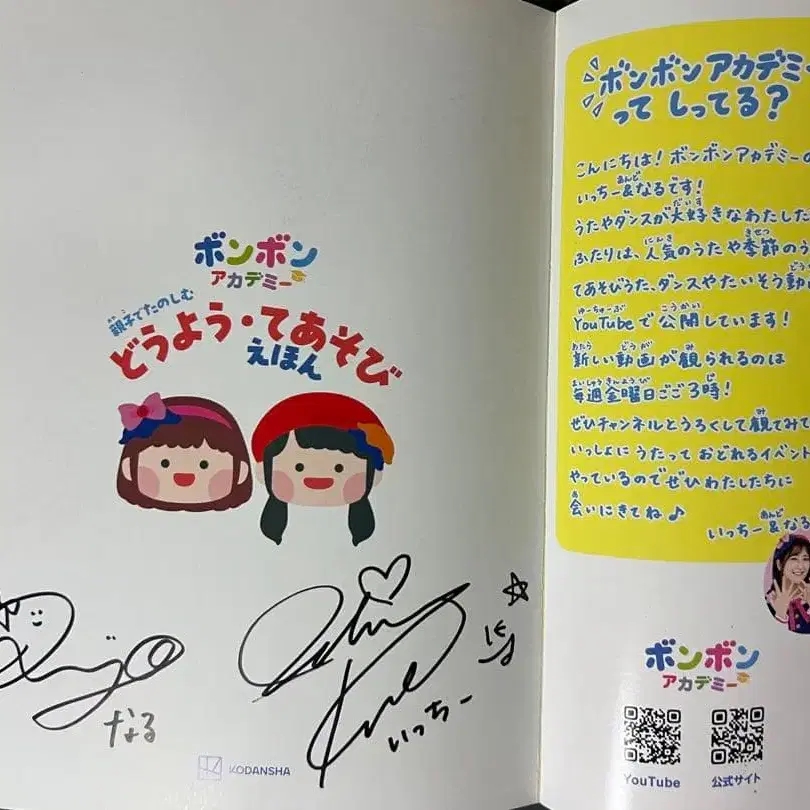 ボンボン
アカデミー
親子でたのしむ
どうよう・てあそび
えほん
なる
いっちー
KODANSHA
ボンボンアカデミー
って しってる?
こんにちは! ボンボンアカデミーの
いっちー&なるです!
うたやダンスが大好きなわたした
ふたりは、人気のうたや季節のう
てあそびうた、ダンスやたいそう動
YouTubeで公開しています!
新しい動画が観られるのは
毎週金曜日ごご3時!
ぜひチャンネルとうろくして観てみて
いっしょに うたって おどれるイベント
やっているのでぜひわたしたちに
会いにきてね♪
いっちー&なる
ボンボン
アカデミー
YouTube
公式サイト